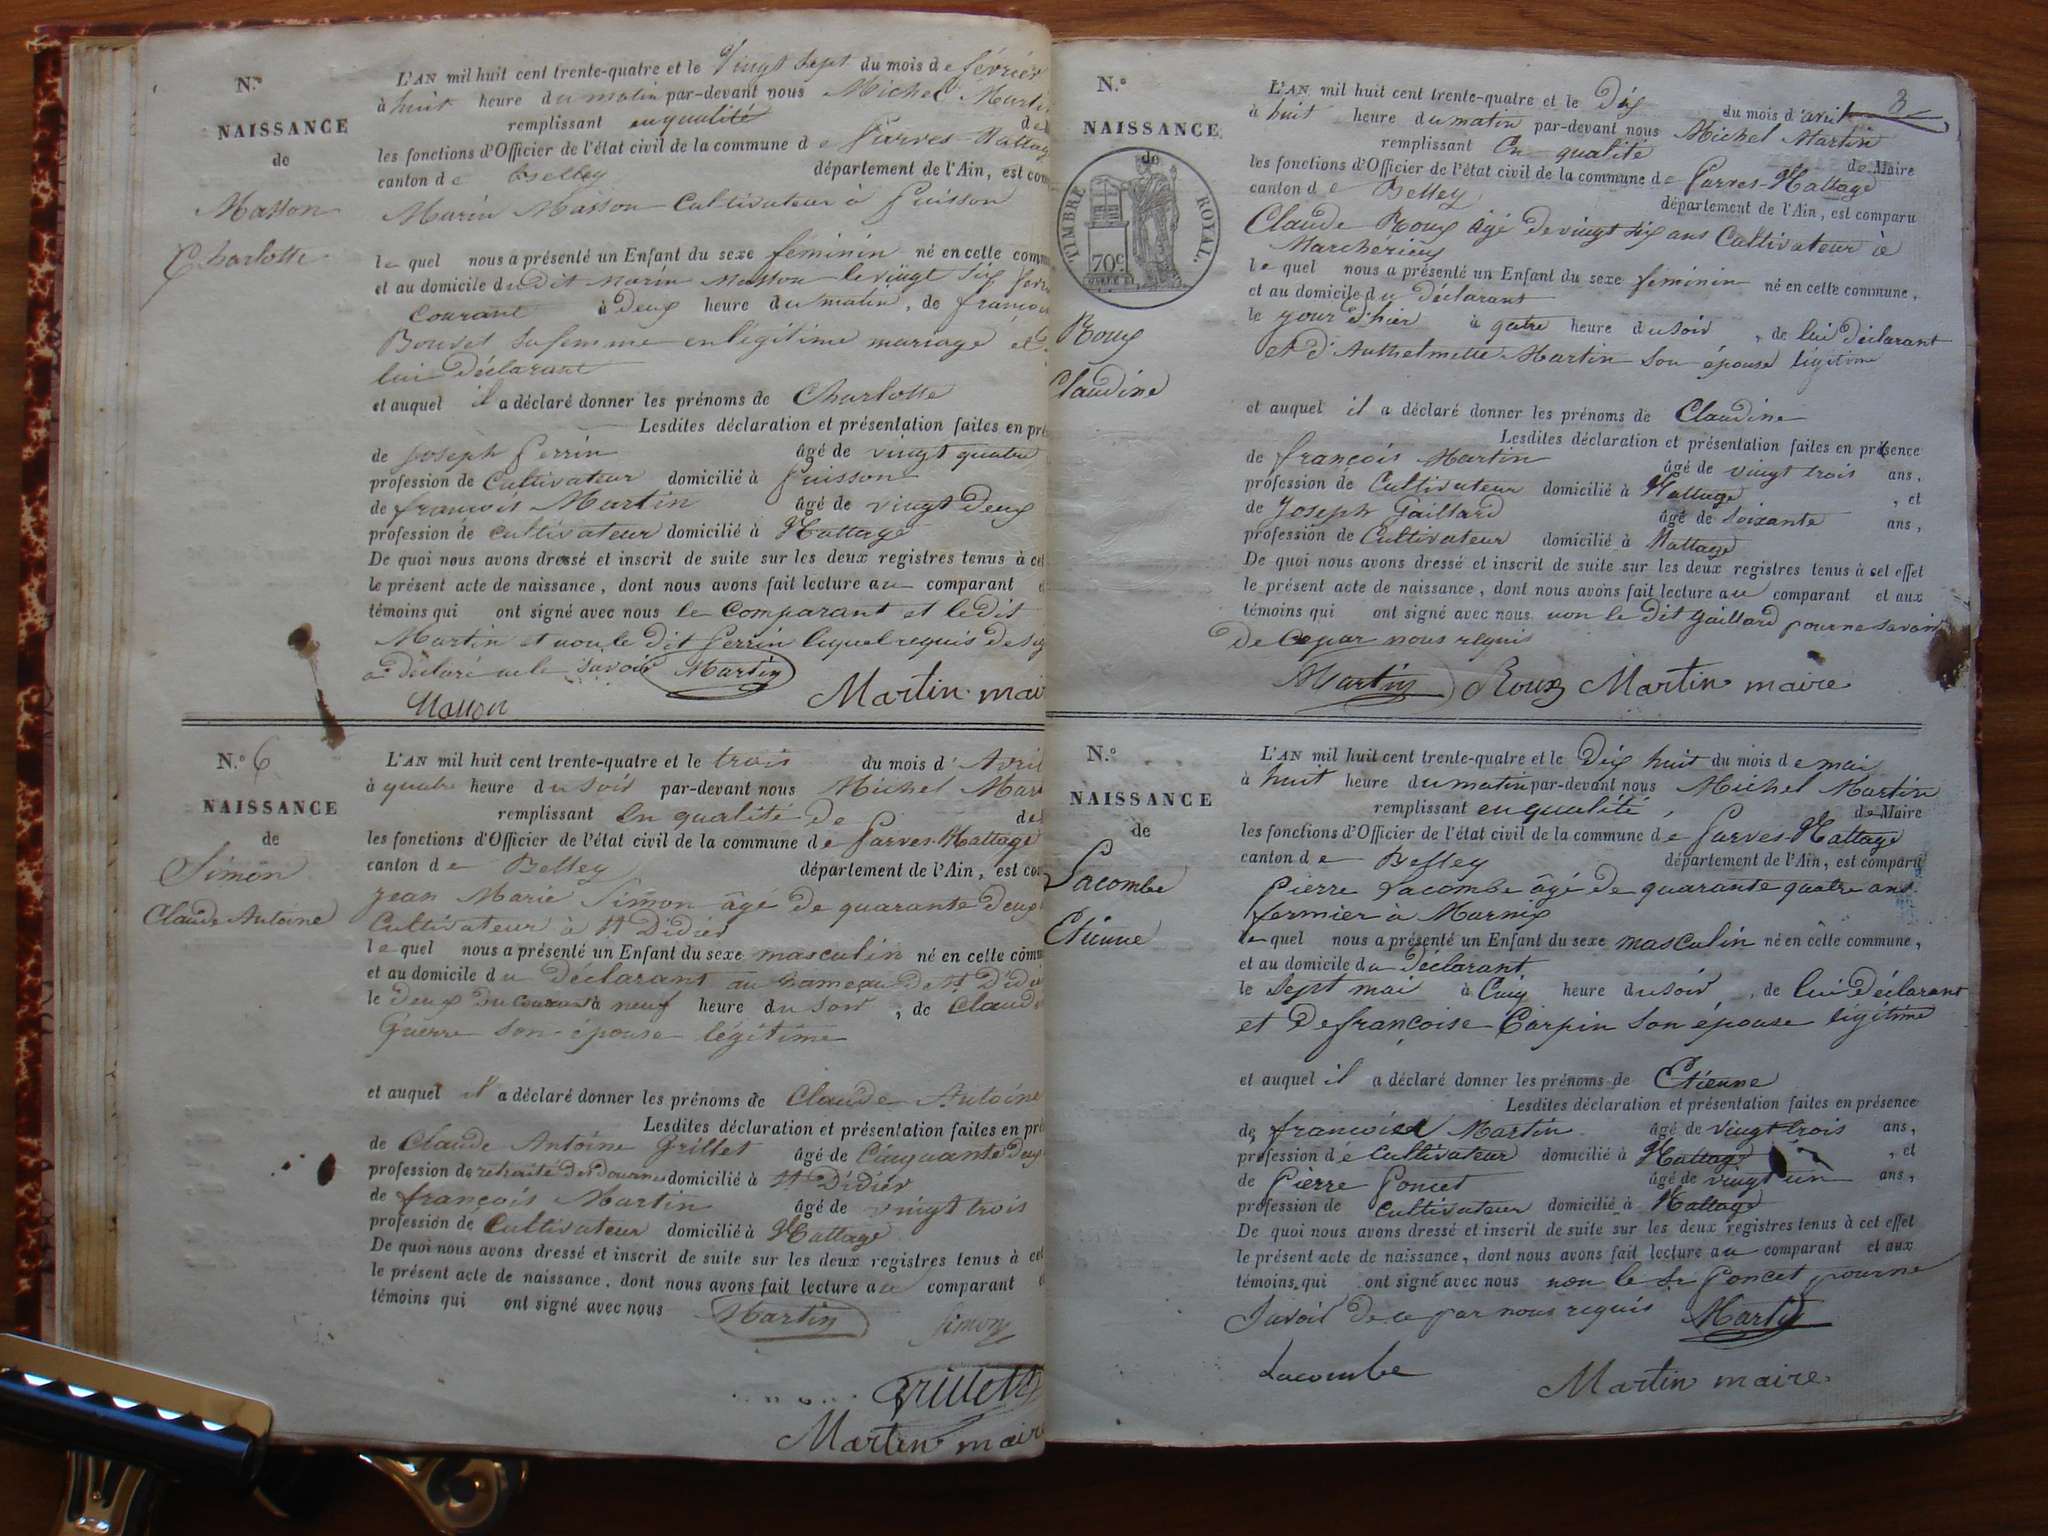 N.º
NAISSANCE
de
Masson
Charlotte
L'AN mil huit cent trente-quatre et le Vingt Sept du mois de février
à huit heure du matin par-devant nous Michel Martin
remplissant en qualité de
les fonctions d'Officier de l'état civil de la commune de Parves-Nattage
canton de Belley département de l'Ain, est com
Marin Masson Cultivateur à Puisson
le quel nous a présenté un Enfant du sexe feminin né en cette comm
et au domicile du dit Marin Masson le vingt six fevri
courant à deux heure du matin, de françoi
Bouvet sa femme en légitime mariage et de
lui Déclarant
et auquel il a déclaré donner les prénoms de Charlotte
Lesdites déclaration et présentation faites en pré
de Joseph Perrin âgé de vingt quatre
profession de Cultivateur domicilié à Puisson
de françois Martin âgé de vingt Deux
profession de cultivateur domicilié à Nattage
De quoi nous avons dressé et inscrit de suite sur les deux registres tenus à cet
le présent acte de naissance, dont nous avons fait lecture au comparant e
témoins qui ont signé avec nous le Comparant et le dit
Martin et non le dit Perrin lequel requis de sig
a Déclaré ne le savoir Martin
Masson Martin mair
N.º 6
NAISSANCE
de
Simon
Claude Antoine
L'AN mil huit cent trente-quatre et le trois du mois d'Avril
à quatre heure du soir par-devant nous Michel Mart
remplissant En qualité de de
les fonctions d'Officier de l'état civil de la commune de Parves-Nattage
canton de Belley département de l'Ain, est com
Jean Marie Simon âgé de quarante deux
Cultivateur à St Didier
le quel nous a présenté un Enfant du sexe masculin né en cette commu
et au domicile du Déclarant au hameau de St Didie
le Deux du Courant à neuf heure du soir, de Claud
Guerre son épouse légitime
et auquel il a déclaré donner les prénoms de Claude Antoine
Lesdites déclaration et présentation faites en pré
de Claude Antoine Grillet âgé de Cinquante Deux
profession de retraité des Douanes domicilié à St Didier
de françois Martin âgé de vingt trois
profession de Cultivateur domicilié à Nattage
De quoi nous avons dressé et inscrit de suite sur les deux registres tenus à cet
le présent acte de naissance, dont nous avons fait lecture au comparant e
témoins qui ont signé avec nous Martin Simon
Grillet
Martin mair
3
N.º
NAISSANCE
de
TIMBRE ROYAL.
70c
Roux
Claudine
L'AN mil huit cent trente-quatre et le Dix du mois d'avril
à huit heure du matin par-devant nous Michel Martin
remplissant En qualité de Maire
les fonctions d'Officier de l'état civil de la commune de Parves-Nattage
canton de Belley département de l'Ain, est comparu
Claude Roux âgé de vingt six ans Cultivateur à
Marcherieux
le quel nous a présenté un Enfant du sexe feminin né en cette commune,
et au domicile du déclarant
le jour d'hier à qatre heure du soir, de lui déclarant
et d'Anthelmette Martin son épouse légitime
et auquel il a déclaré donner les prénoms de Claudine
Lesdites déclaration et présentation faites en présence
de françois Martin âgé de vingt trois ans,
profession de Cultivateur domicilié à Nattage, et
de Joseph Gaillard âgé de soixante ans,
profession de Cultivateur domicilié à Nattage
De quoi nous avons dressé et inscrit de suite sur les deux registres tenus à cet effet
le présent acte de naissance, dont nous avons fait lecture au comparant et aux
témoins qui ont signé avec nous non le dit Gaillard pour ne savoir
de ce par nous requis
Martin Roux Martin maire
N.º
NAISSANCE
de
Lacombe
Etienne
L'AN mil huit cent trente-quatre et le Dix huit du mois de mai
à huit heure du matin par-devant nous Michel Martin
remplissant en qualité, de Maire
les fonctions d'Officier de l'état civil de la commune de Parves-Nattage
canton de Belley département de l'Ain, est comparu
Pierre Lacombe âgé de quarante quatre ans
fermier à Marnix
le quel nous a présenté un Enfant du sexe masculin né en cette commune,
et au domicile du Déclarant
le Sept mai à Cinq heure du soir, de lui Déclarant
et De françoise Carpin son épouse légitime
et auquel il a déclaré donner les prénoms de Etienne
Lesdites déclaration et présentation faites en présence
de françois Martin âgé de vingt trois ans,
profession de Cultivateur domicilié à Nattage, et
de Pierre Poncet âgé de vingt un ans,
profession de Cultivateur domicilié à Nattage
De quoi nous avons dressé et inscrit de suite sur les deux registres tenus à cet effet
le présent acte de naissance, dont nous avons fait lecture au comparant et aux
témoins qui ont signé avec nous non le Sr Poncet pour ne
savoir de ce par nous requis Martin
Lacombe Martin maire